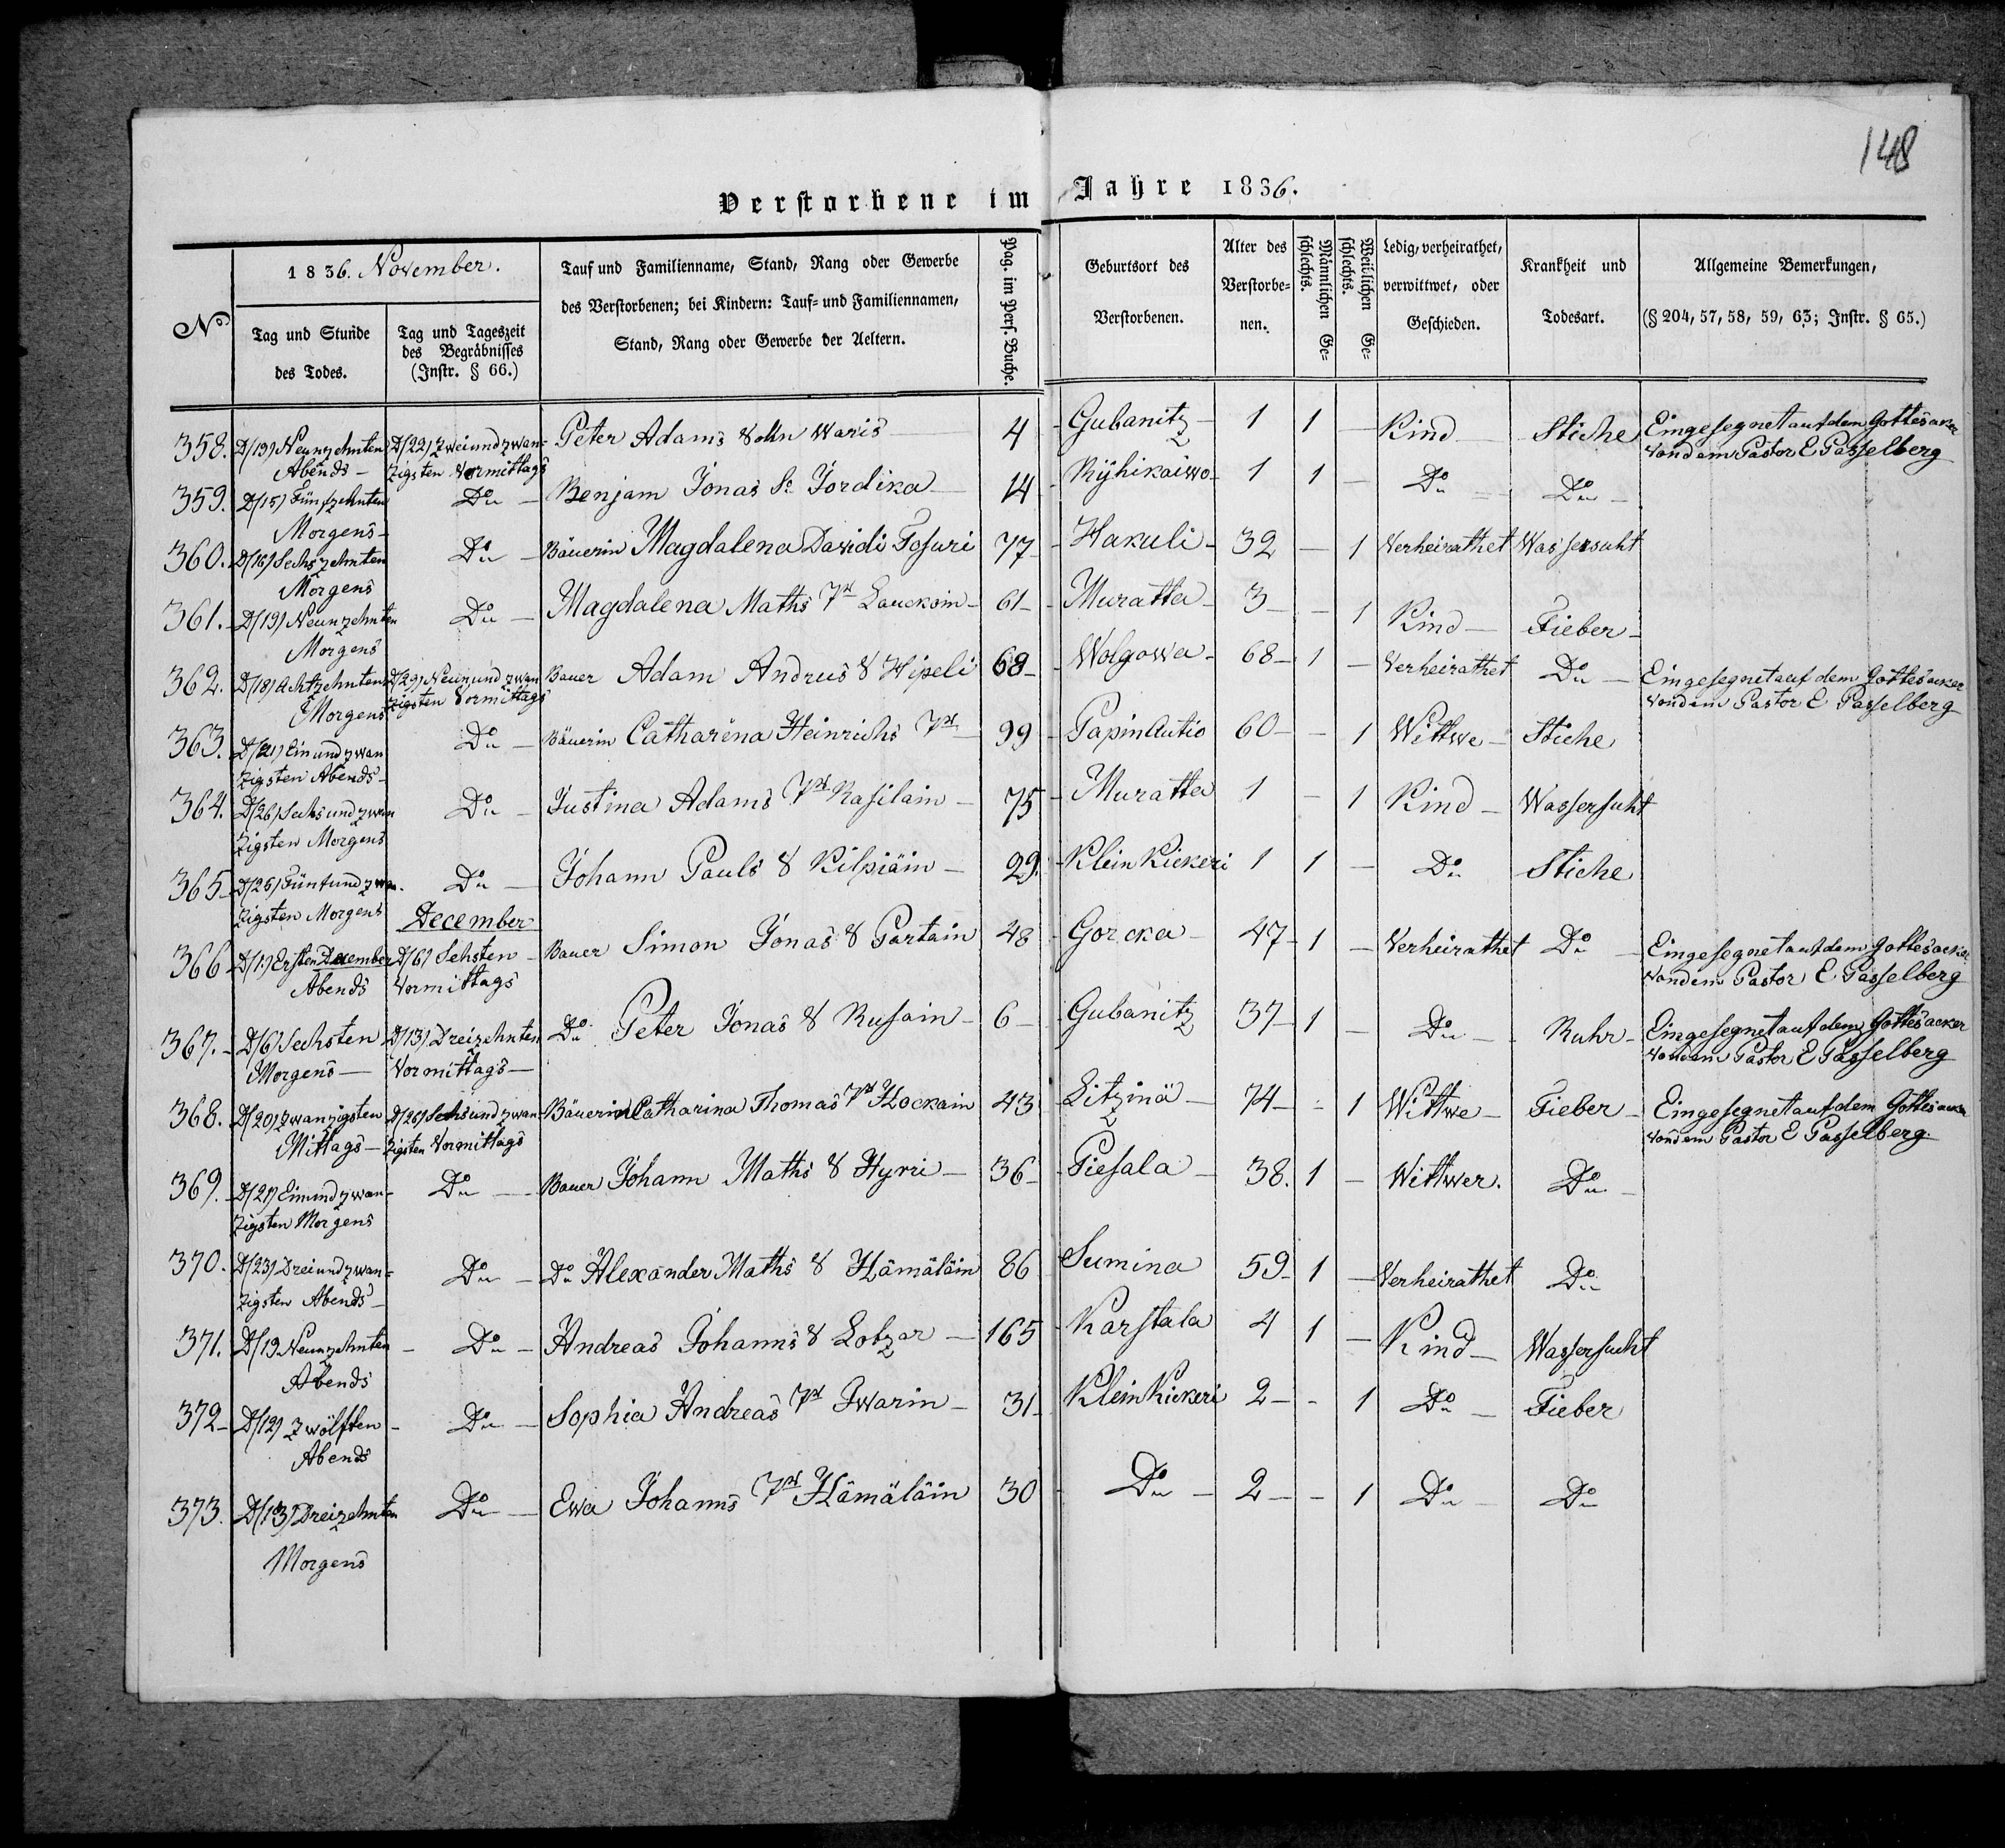 148
Verstorbene im Jahre 1836.
No
1836. November.
Tag und Stunde
des Todes.
Tag und Tageszeit
des Begräbnisses
(Instr. § 66.)
Tauf und Familienname, Stand, Rang oder Gewerbe
des Verstorbenen; bei Kindern: Tauf- und Familiennamen,
Stand, Rang oder Gewerbe der Aeltern.
Pag. im Pers. Buche.
Geburtsort des
Verstorbenen.
Alter des
Verstorbe-
nen.
Männlichen Ge-
schlechts.
Weiblichen Ge-
schlechts.
Ledig, verheirathet,
verwittwet, oder
Geschieden.
Krankheit und
Todesart.
Allgemeine Bemerkungen,
(§ 204, 57, 58, 59, 63; Instr. § 65.)
358. D/19/ Neunzehnten D/22/ Zweiundzwan- Peter Adams Sohn Waris 4 Gubanitz 1 1 — Kind Stiche Eingesegnet auf dem Gottesacker
Abends zigsten Vormittags von dem Pastor E Passelberg
359. D/15/ Fünfzehnten Do Benjam Jonas Sn Jordika 14 Ryhikaiwo 1 1 — Do Do
Morgens
360. D/16/ Sechszehnten Do Bäuerin Magdalena Davidi Tosuri 77 Hakuli 32 — 1 Verheirathet Wassersuht
Morgens
361. D/19/ Neunzehnten Do Magdalena Maths Tr Lauckoin 61 Muratta 3 — 1 Kind Fieber
Morgens
362. D/18/ Achtzehnten D/29/ Neunundzwan Bauer Adam Andreis S Hipeli 68 Wolgowa 68 1 — Verheirathet Do Eingesegnet auf dem Gottesacker
Morgens zigsten Vormittags von dem Pastor E Passelberg
363. D/21/ Einundzwan Do Bäuerin Catharena Heinrichs Tr 99 PapinAutio 60 — 1 Wittwe Stiche
zigsten Abends
364. D/26/ Sechsundzwan Do Justina Adams Tr Rasilain 75 Muratta 1 — 1 Kind Wassersuht
zigsten Morgens
365 D/25/ Fünfundzwan. Do Johann Pauls S Kilpiäin 29. Klein Kickeri 1 1 — Do Stiche
zigsten Morgens December
366 D/1./ Ersten December D/6/ Sehsten Bauer Simon Jonas S Partain 48 Gorcka 47 1 — Verheirathet Do Eingesegnet auf dem Gottesacker
Abends Vormittags von dem Pastor E Passelberg
367. D/6/ Sechsten D/13/ Dreizehnten Do Peter Jonas S Rusain 6 Gubanitz 37 1 — Do Ruhr Eingesegnet auf dem Gottesacker
Morgens Vormittags von dem Pastor E Passelberg
368. D/20/ Zwanzigsten D/26/ Sechsundzwan- Bäuerin Catharina Thomas Tr Hockain 43 Litzinä 74 — 1 Wittwe Fieber Eingesegnet auf dem Gottesacker
Mittags zigsten Vormittags von dem Pastor E Passelberg
369. D/21/ Einundzwan- Do Bauer Johann Maths S Hyrri 36 Piesala 38. 1 — Wittwer. Do
zigsten Morgens
370. D/23/ Dreiundzwan- Do Do Alexander Maths S Hämäläin 86 Sumina 59 1 — Verheirathet Do
zigsten Abends
371. D/19 Neunzehnten Do Andreas Johanns S Lotzar 165 Karstala 4 1 — Kind Wassersucht
Abends
372 D/12/ Zwölften Do Sophia Andreas Tr Iwarin 31 Klein Kickeri 2 — 1 Do Fieber
Abends
373. D/13/ Dreizehnten Do Ewa Johanns Tr Hämäläin 30 Do 2 — 1 Do Do
Morgens